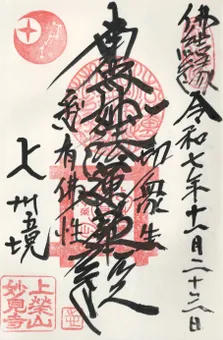 令和七年十一月二十三日
一切衆生
南無妙法蓮華経
悉有佛性
上州
上榮山
妙見寺